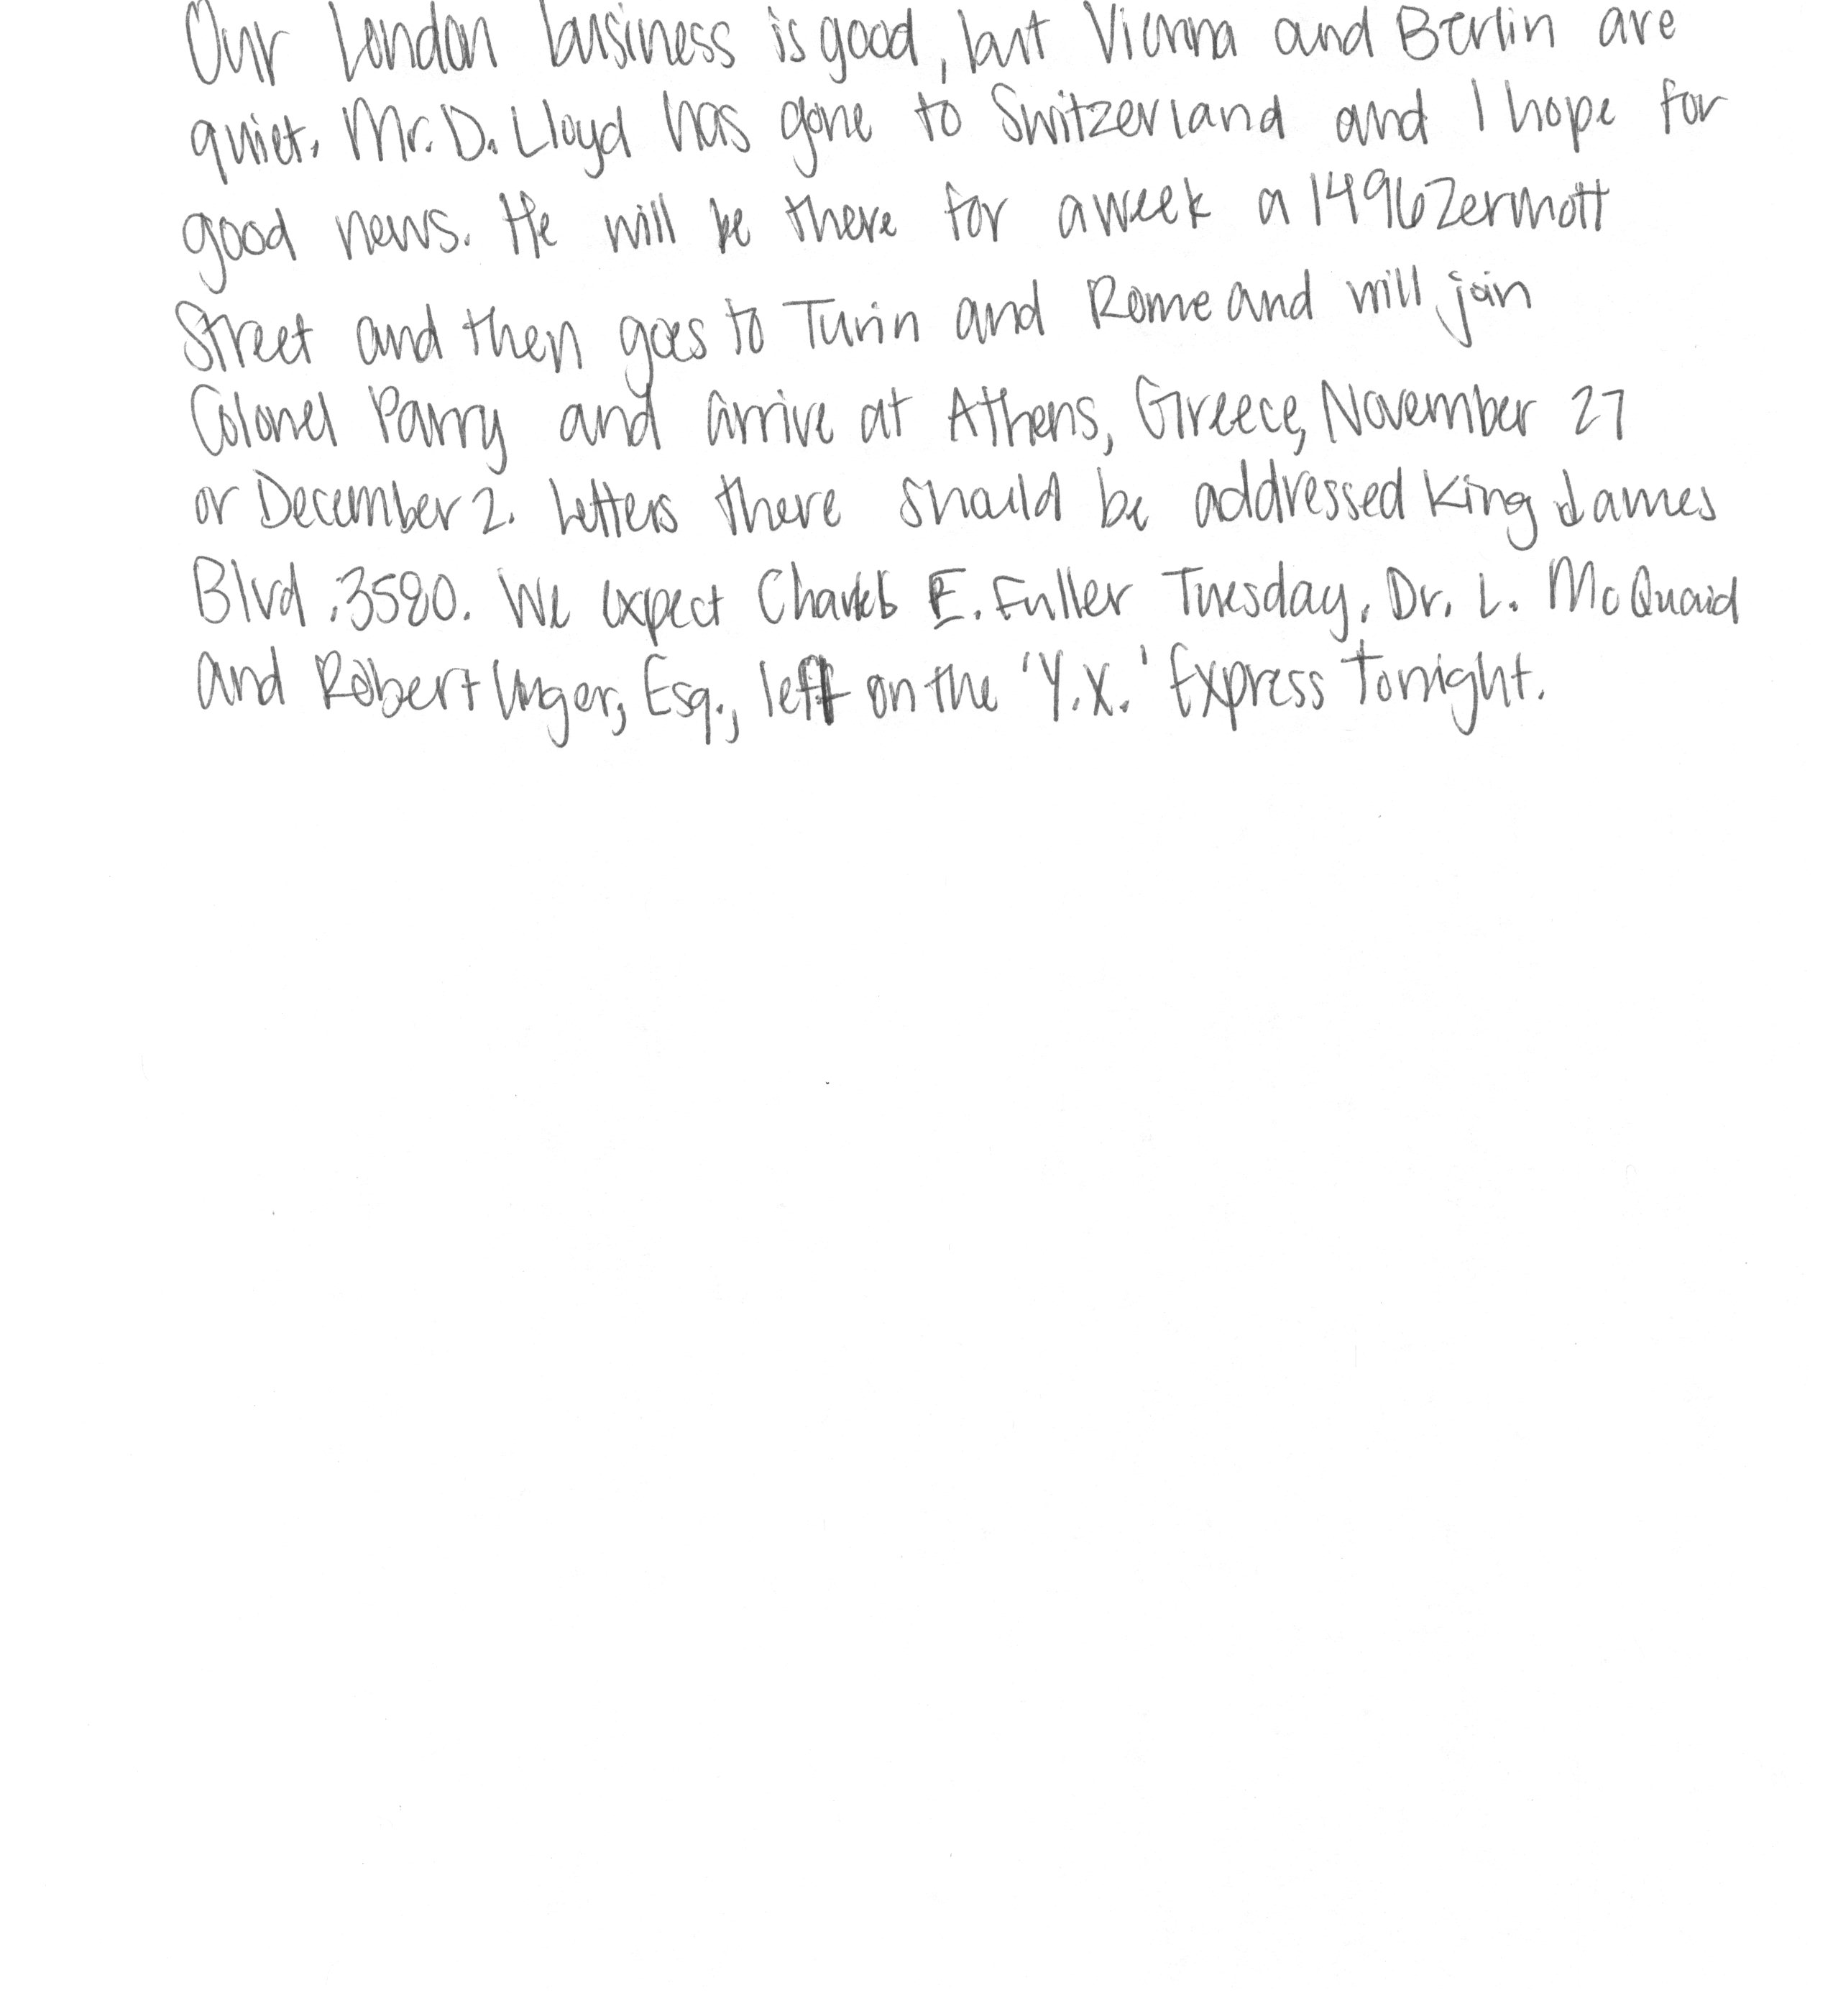 Our London business is good, but Vienna and Berlin are
quiet. Mr. D. Lloyd has gone to Switzerland and I hope for
good news. He will be there for a week a 1496 Zermott
Street and then goes to Turin and Rome and will join
Colonel Parry and arrive at Athens, Greece, November 27
or December 2. Letters there should be addressed King James
Blvd. 3580. We expect Charles E. Fuller Tuesday. Dr. L. McQuaid
and Robert Unger, Esq., left on the 'Y.X.' Express Tonight.